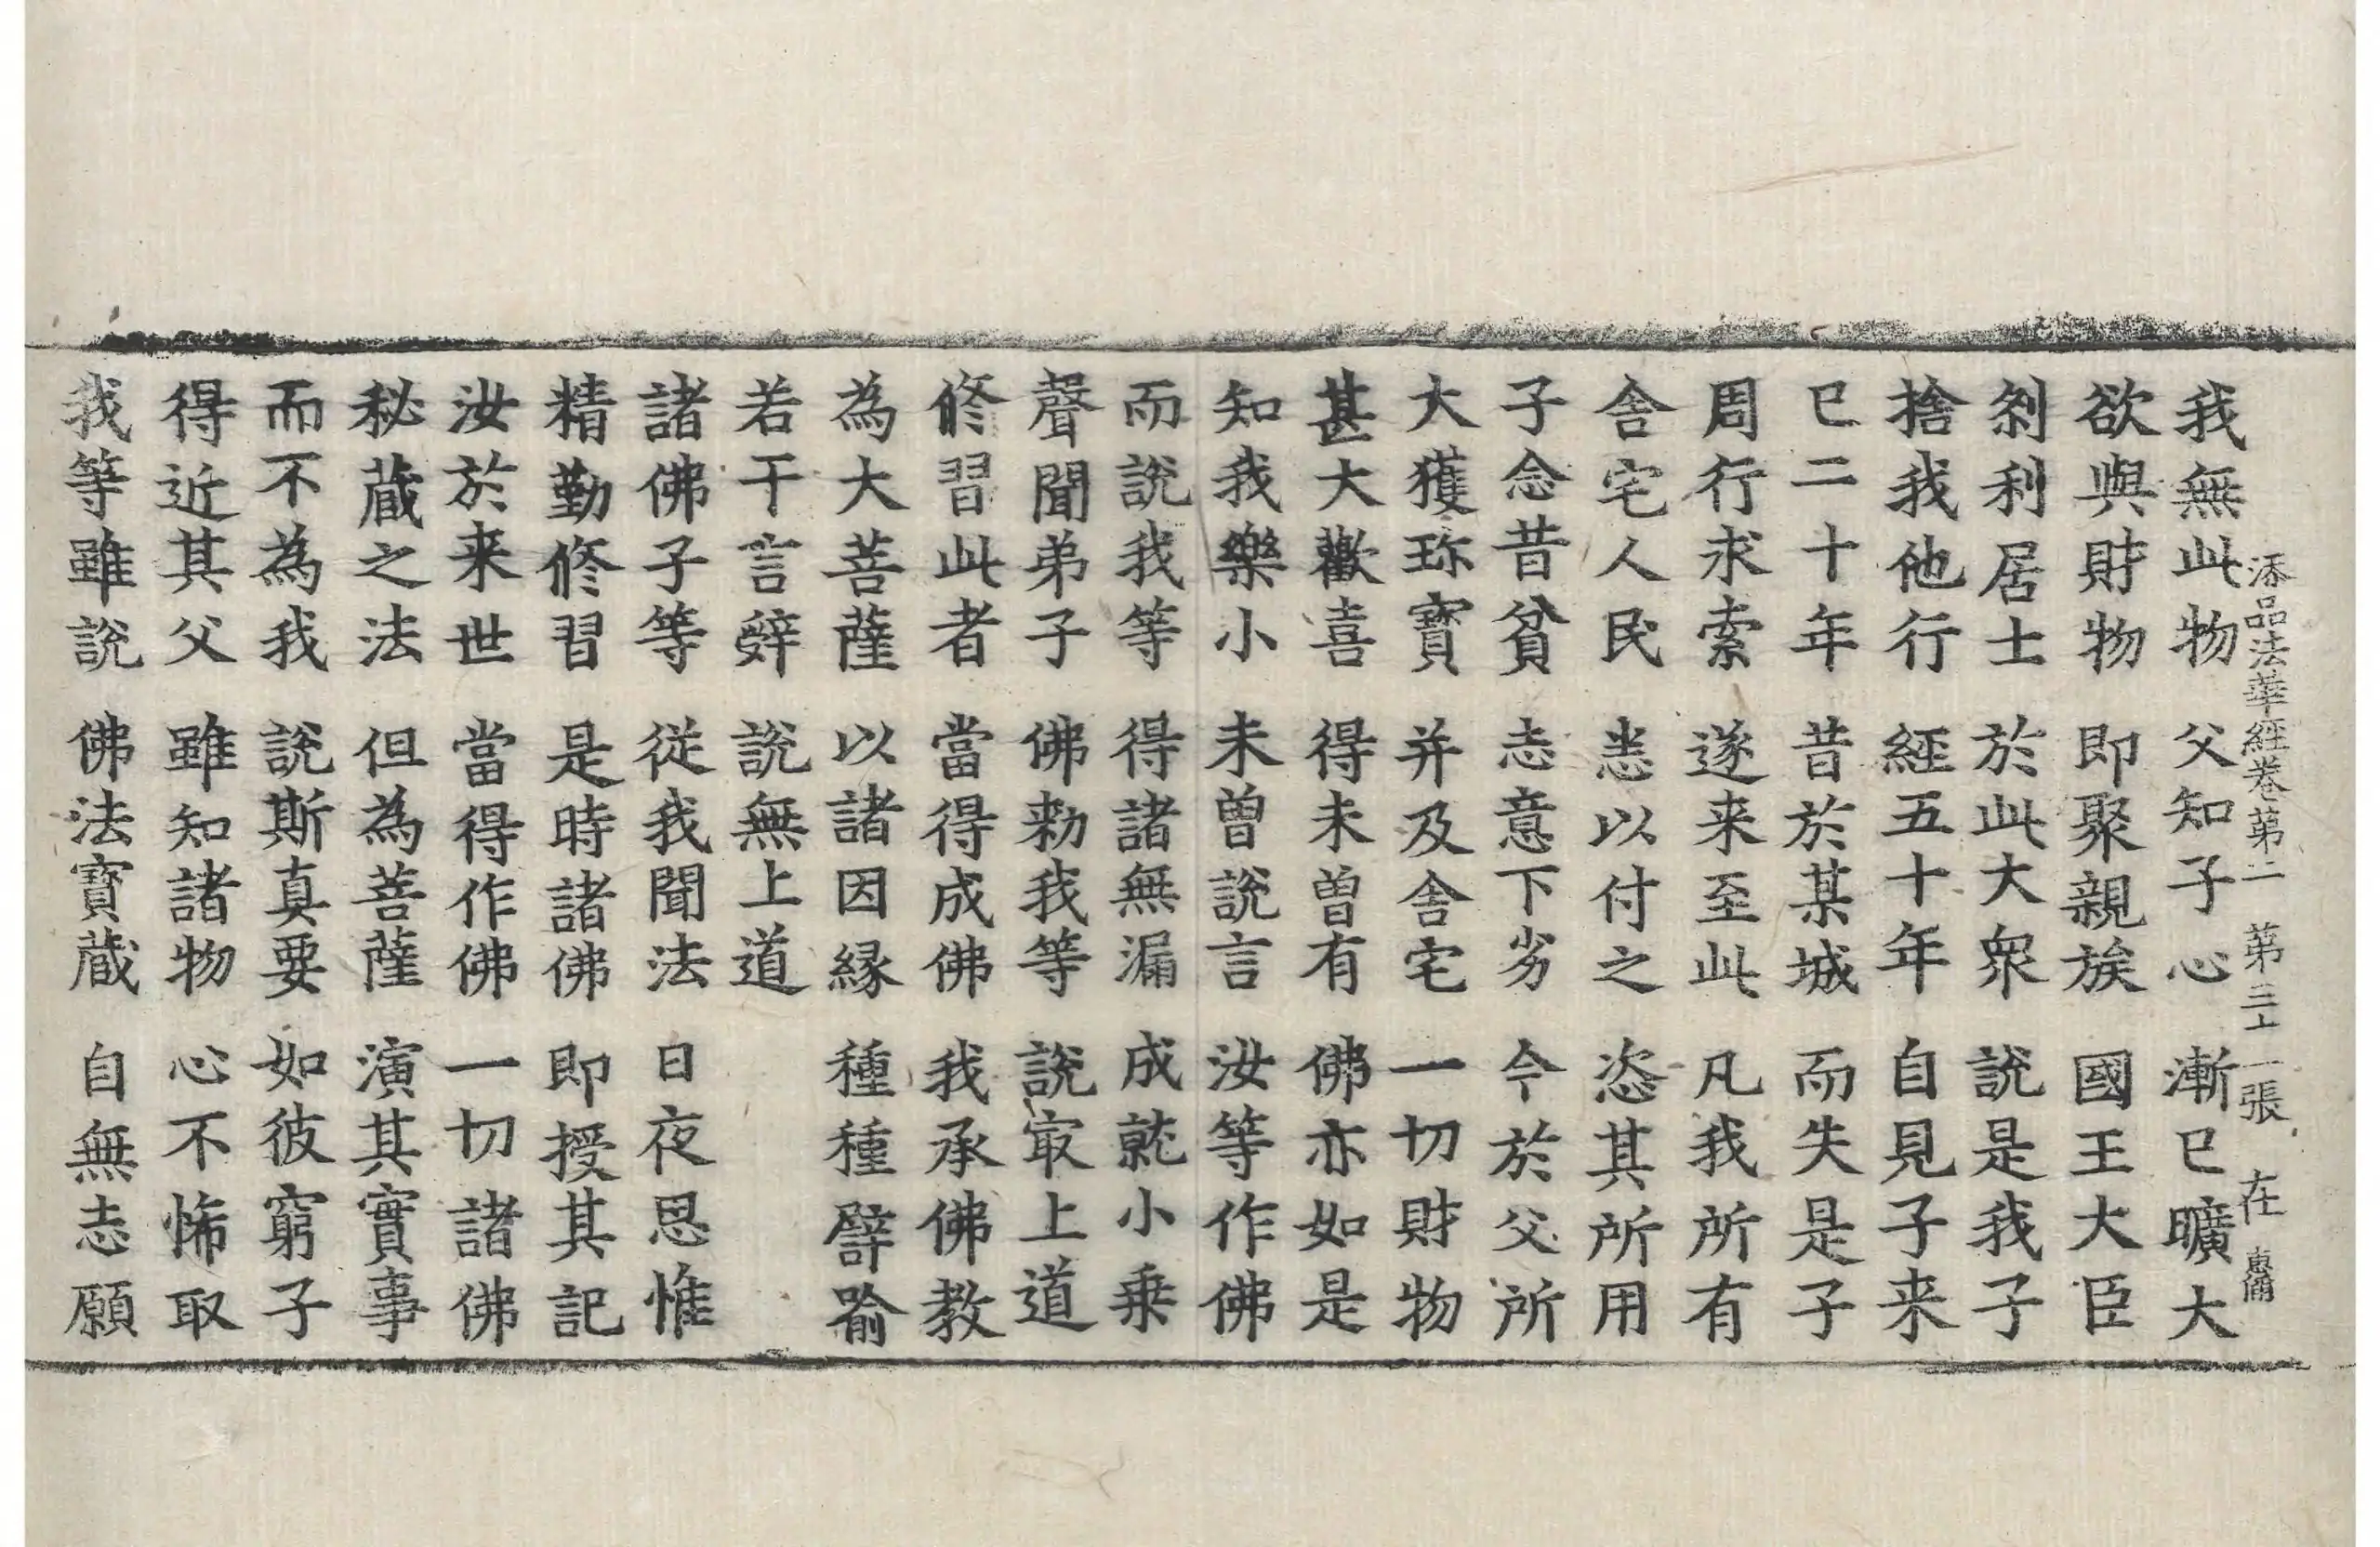 添品法華經卷第二 第三十一張 在
我無此物 父知子心 漸已曠大
欲與財物 即聚親族 國王大臣
剎利居士 於此大衆 說是我子
捨我他行 經五十年 自見子来
已二十年 昔於某城 而失是子
周行求索 遂来至此 凡我所有
舍宅人民 悉以付之 恣其所用
子念昔貧 志意下劣 今於父所
大獲珎寶 并及舍宅 一切財物
甚大歡喜 得未曾有 佛亦如是
知我樂小 未曾說言 汝等作佛
而說我等 得諸無漏 成就小乗
聲聞弟子 佛勑我等 說㝡上道
修習此者 當得成佛 我承佛教
為大菩薩 以諸因縁 種種譬喻
若干言辝 說無上道
諸佛子等 從我聞法 日夜思惟
精勤修習 是時諸佛 即授其記
汝於来世 當得作佛 一切諸佛
秘蔵之法 但為菩薩 演其實事
而不為我 說斯真要 如彼窮子
得近其父 雖知諸物 心不悕取
我等雖說 佛法寶蔵 自無志願